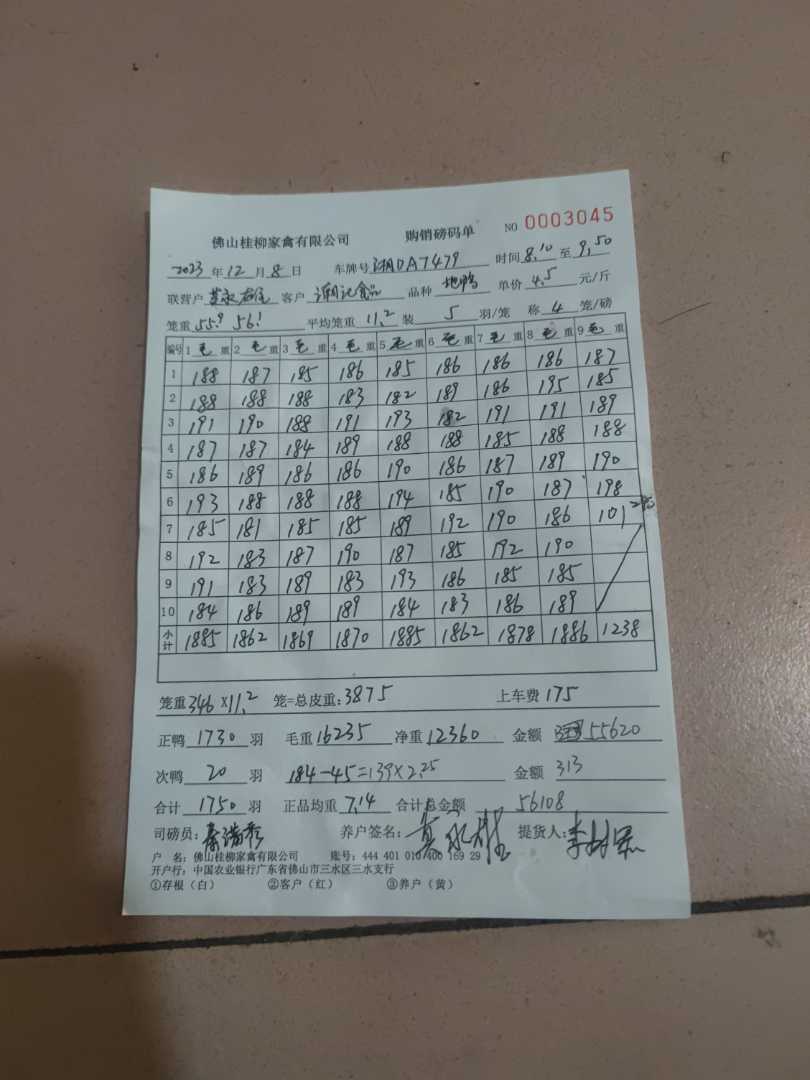 佛山桂柳家禽有限公司 购销磅码单 NO 0003045
2023 年 12 月 8 日 车牌号 湘DA7479 时间 8.10 至 9.50
联营户 客户 食品 品种 地鸭 单价 4.5 元/斤
笼重 55.9 56.1 平均笼重 11.2 装 5 羽/笼 称 4 笼/磅
编号 1 毛 重 2 毛 重 3 毛 重 4 毛 重 5 毛 重 6 毛 重 7 毛 重 8 毛 重 9 毛 重
1 188 187 185 186 185 186 186 186 187
2 188 188 188 183 182 189 186 195 185
3 191 190 188 191 193 182 191 191 189
4 187 187 184 189 188 188 185 188 188
5 186 189 186 186 190 186 187 189 190
6 193 188 188 188 194 185 190 187 198
7 185 181 185 185 189 192 190 186 101
8 192 183 187 190 187 185 192 190
9 191 183 189 183 193 186 185 185
10 184 186 189 189 184 183 186 189
小计 1885 1862 1869 1870 1885 1862 1878 1886 1238
笼重 346 ×11.2 笼=总皮重: 3875 上车费 175
正鸭 1730 羽 毛重 16235 净重 12360 金额 55620
次鸭 20 羽 184-45=139×2.25 金额 313
合计 1750 羽 正品均重 7.14 合计总金额 56108
司磅员: 养户签名: 提货人:
户 名: 佛山桂柳家禽有限公司 账号: 444 401 010 400 169 29
开户行: 中国农业银行广东省佛山市三水区三水支行
①存根(白) ②客户(红) ③养户(黄)